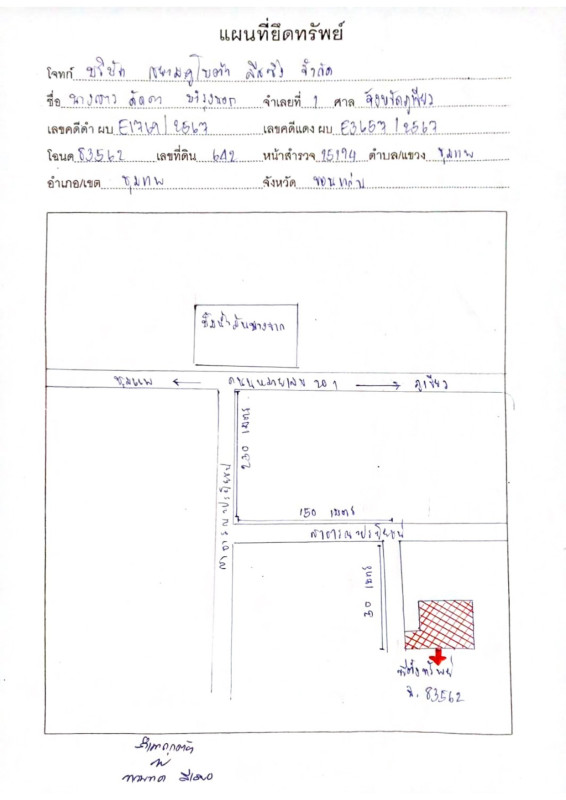 แผนที่ยึดทรัพย์
โจทก์ บริษัท สยามคูโบต้า ลีสซิ่ง จำกัด
ชื่อ นางสาว ลัดดา จำเลยที่ 1 ศาล จังหวัดภูเขียว
เลขคดีดำ ผบ E1769 / 2567 เลขคดีแดง ผบ E3657 / 2567
โฉนด 83562 เลขที่ดิน 642 หน้าสำรวจ 15194 ตำบล/แขวง ชุมแพ
อำเภอ/เขต ชุมแพ จังหวัด ขอนแก่น
ปั๊มน้ำมันบางจาก
ชุมแพ ← ถนนหมายเลข 201 → ภูเขียว
230 เมตร
สาธารณประโยชน์
150 เมตร
สาธารณประโยชน์
30 เมตร
ที่ตั้งทรัพย์
ฉ. 83562
สำเนาถูกต้อง